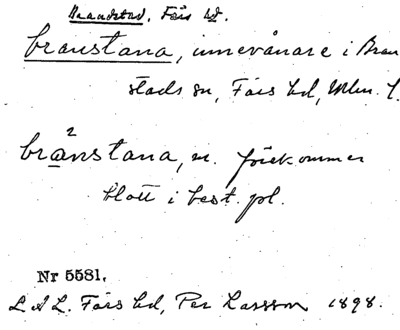 Branstad, Färs hd.
branstana, innevånare i Bran
stads sn, Färs hd, Mlm. l.
brånstana, m. förekommer
blott i best. pl.
Nr 5581.
L A L. Färs hd, Per Larsson 1898.